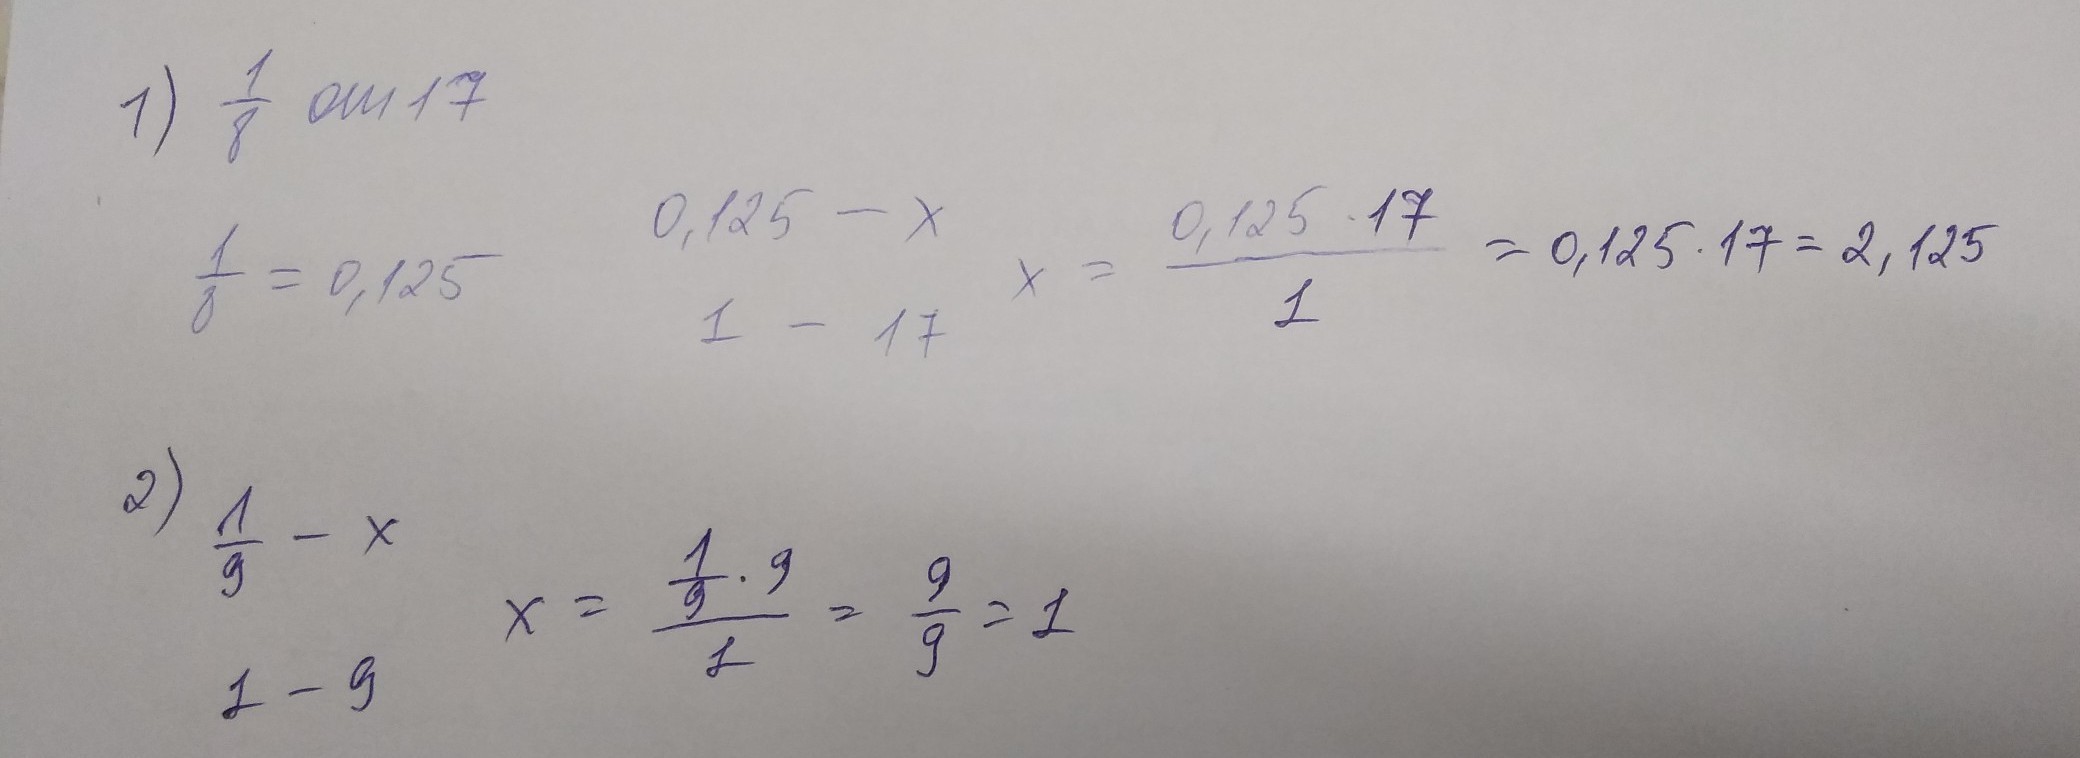 1) 1/8 от 17
1/8 = 0,125
0,125 – x
1 – 17
x = (0,125 · 17)/1 = 0,125 · 17 = 2,125
2) 1/9 – x
1 – 9
x = (1/9 · 9)/1 = 9/9 = 1